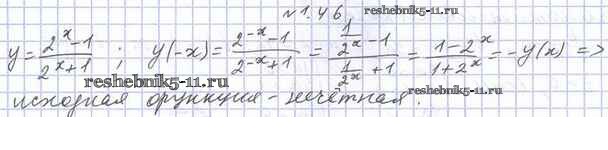 №1.46 reshebnik5-11.ru
y = (2^x - 1)/(2^x + 1) ; y(-x) = (2^-x - 1)/(2^-x + 1) = (1/2^x - 1)/(1/2^x + 1) = (1 - 2^x)/(1 + 2^x) = -y(x) =>
reshebnik5-11.ru reshebnik5-11.ru
исходная функция - нечётная.